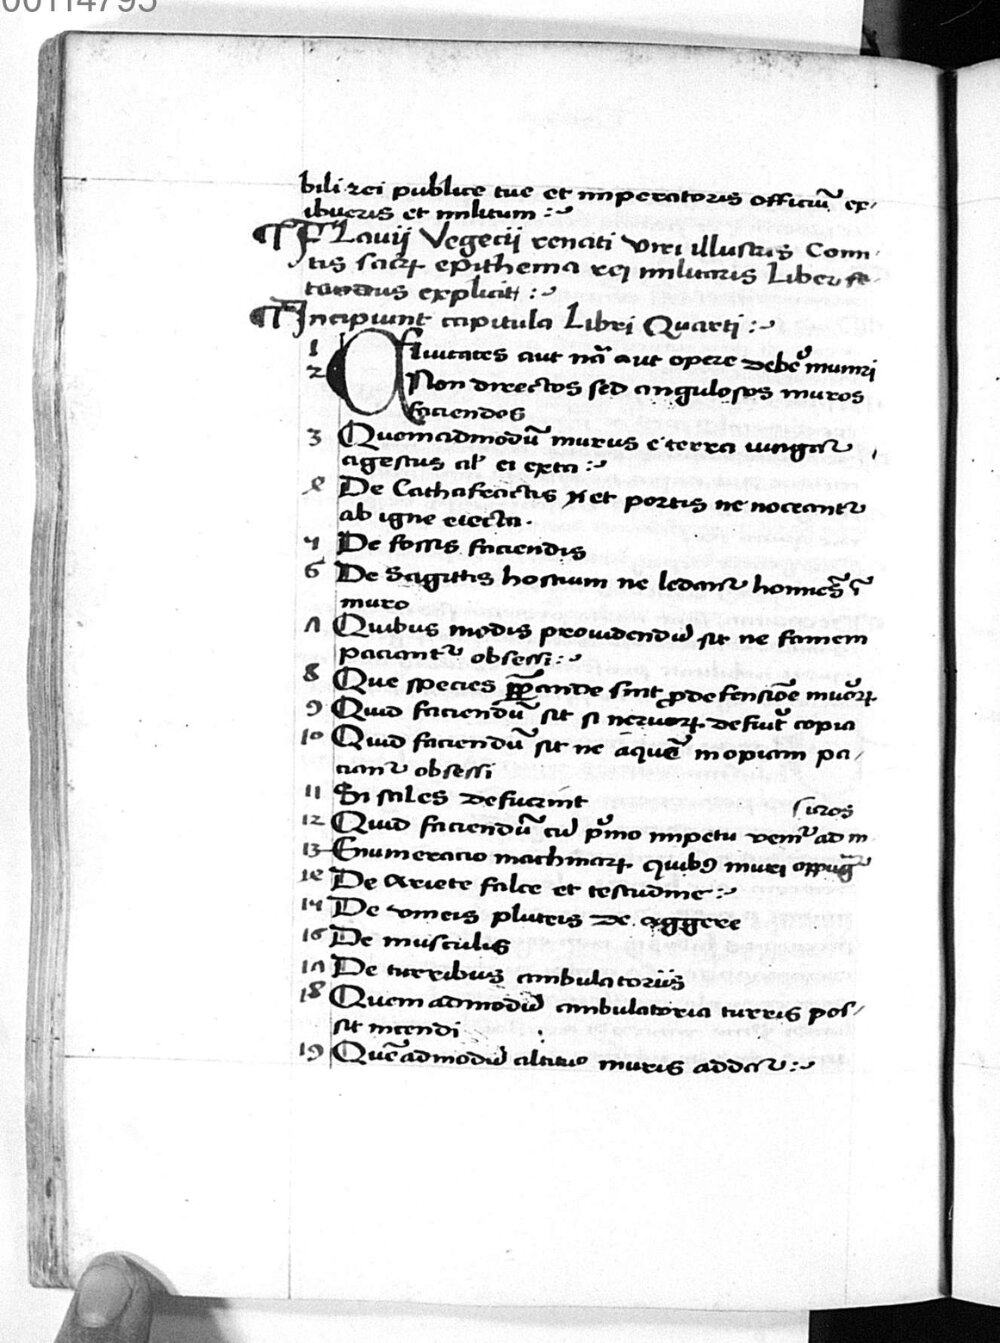 00114795
bili rei publice tue et imperatoris officiũ ex-
ibueris et militum :~
FLauij Vegecij renati viri illustris Comi-
tis sacꝝ epithema rei militaris Liber
explicit :~
Incipiunt capitula Libri Quarti :~
1 Ciuitates aut nã aut opere debẽt muniri
2 Non directos sed angulosos muros
faciendos
3 Quomadmodũ murus e terra iungat᷑
agestus ei exta :~
4 De Cathafractis et portis ne noceant᷑
ab igne eiecta.
5 De fossis faciendis
6 De Sagittis hostium ne ledant᷑ homines ĩ
muro
7 Quibus modis prouidendũ sit ne famem
paciant᷑ obsessi :~
8 Que species ꝑꝑande sint ꝓ defensiõe muroꝝ
9 Quid faciendũ sit si neruoꝝ defiut᷑ copia
10 Quid faciendũ sit ne aque inopiam pa-
tiant᷑ obsessi
11 Si sales defuerint
suros
12 Quid faciendũ cũ pͥmo impetu venit᷑ ad m
13 Enumeracio machinaꝝ quibꝯ muri oppug̃
14 De Ariete falce et testudine :~
15 De vineis pluteis de aggere
16 De musculis
17 De turribus ambulatorijs
18 Quem admodũ ambulatoria turris pos-
sit incendi
19 Quẽadmodũ altitudo muris addat᷑ :~